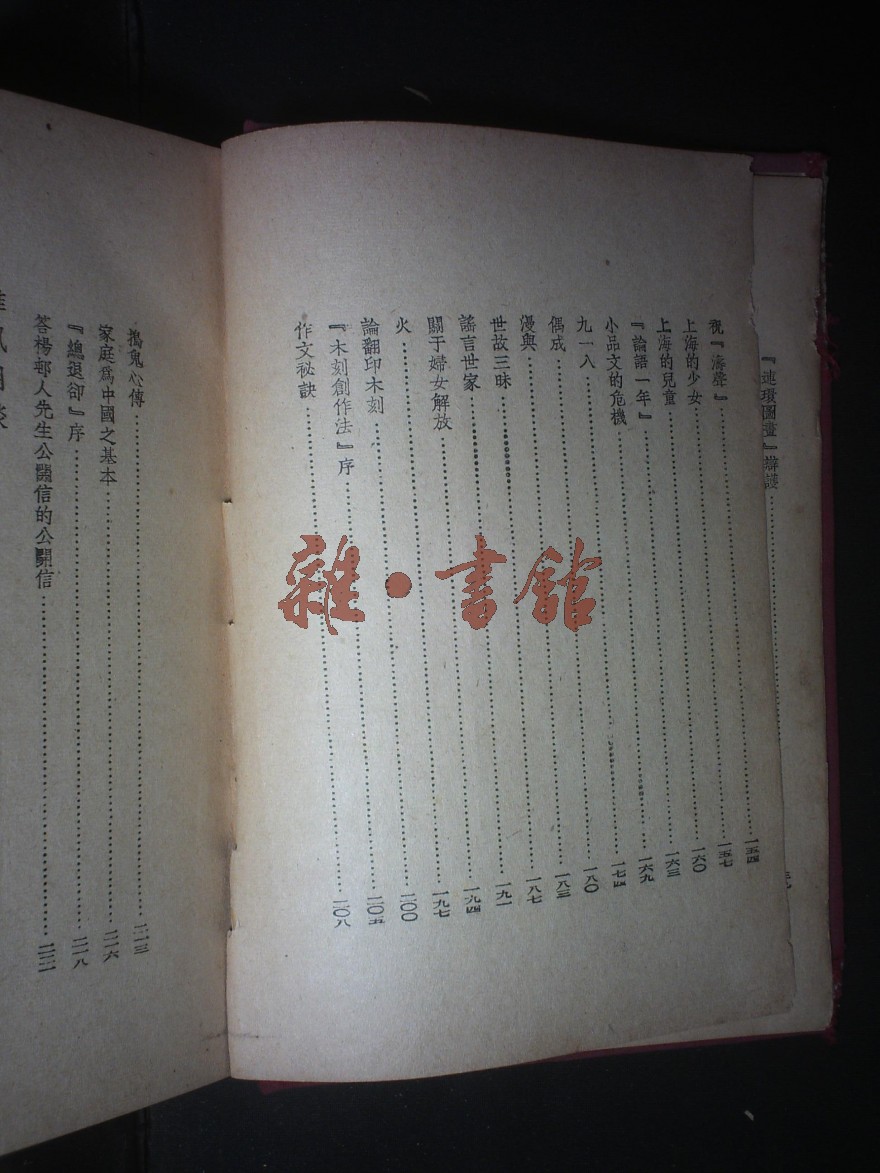 『連環圖畫』辯護
祝『濤聲』……一五四
上海的少女……一五七
上海的兒童……一六〇
『論語一年』……一六三
小品文的危機……一六九
九一八……一七四
偶成……一八〇
漫與……一八三
世故三昧……一八七
謠言世家……一九一
關于婦女解放……一九四
火……一九七
論翻印木刻……二〇〇
『木刻創作法』序……二〇五
作文祕訣……二〇八
搗鬼心傳……二一三
家庭爲中國之基本……二一六
『總退卻』序……二一八
答楊邨人先生公開信的公開信……
雜·書館